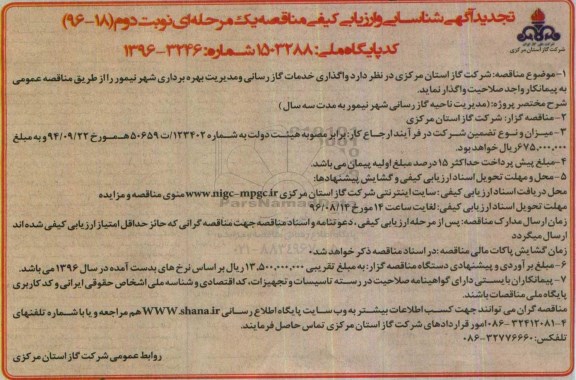 تجدید آگهی شناسایی و ارزیابی کیفی مناقصه یک مرحله‌ای نوبت دوم (۱۸-۹۶)
کد پایگاه ملی: ۱۵۰۳۲۸۸ شماره: ۳۲۴۶-۱۳۹۶
شرکت گاز استان مرکزی
۱- موضوع مناقصه: شرکت گاز استان مرکزی در نظر دارد واگذاری خدمات گاز رسانی ومدیریت بهره برداری شهر نیمور را از طریق مناقصه عمومی
به پیمانکار واجد صلاحیت واگذار نماید.
شرح مختصر پروژه: (مدیریت ناحیه گاز رسانی شهر نیمور به مدت سه سال)
۲- مناقصه گزار: شرکت گاز استان مرکزی
۳- میزان و نوع تضمین شرکت در فرآیند ارجاع کار: برابر مصوبه هیئت دولت به شماره ۱۲۳۴۰۲/ت ۵۰۶۵۹ هـ مورخ ۹۴/۰۹/۲۲ و به مبلغ
۶۷۵,۰۰۰,۰۰۰ ریال خواهد بود.
۴- مبلغ پیش پرداخت حداکثر ۱۵ درصد مبلغ اولیه پیمان می باشد.
۵- محل و مهلت تحویل اسناد ارزیابی کیفی و گشایش پیشنهادها:
محل دریافت اسناد ارزیابی کیفی: سایت اینترنتی شرکت گاز استان مرکزی www.nigc-mpgc.ir منوی مناقصه و مزایده
مهلت تحویل اسناد ارزیابی کیفی: لغایت ساعت ۱۴ مورخ ۹۶/۰۸/۱۳
زمان ارسال مدارک مناقصه: پس از مرحله ارزیابی کیفی، دعوتنامه و اسناد مناقصه جهت مناقصه گرانی که حائز حداقل امتیاز ارزیابی کیفی شده اند
ارسال میگردد
زمان گشایش پاکات مالی مناقصه: در اسناد مناقصه ذکر خواهد شد.
۶- مبلغ برآوردی و پیشنهادی دستگاه مناقصه گزار: به مبلغ تقریبی ۱۳,۵۰۰,۰۰۰,۰۰۰ ریال بر اساس نرخ های بدست آمده در سال ۱۳۹۶ می باشد.
۷- پیمانکاران بایستی دارای گواهینامه صلاحیت در رسته تاسیسات و تجهیزات، کد اقتصادی و شناسه ملی اشخاص حقوقی ایرانی و کد کاربری
پایگاه ملی مناقصات باشند.
مناقصه گران می توانند جهت کسب اطلاعات بیشتر به وب سایت پایگاه اطلاع رسانی WWW.shana.ir هم مراجعه و یا با شماره تلفنهای
۴-۳۲۴۱۲۰۸۱-۰۸۶ امور قراردادهای شرکت گاز استان مرکزی تماس حاصل فرمایند.
تلفکس: ۳۲۷۷۶۶۶۰-۰۸۶
روابط عمومی شرکت گاز استان مرکزی